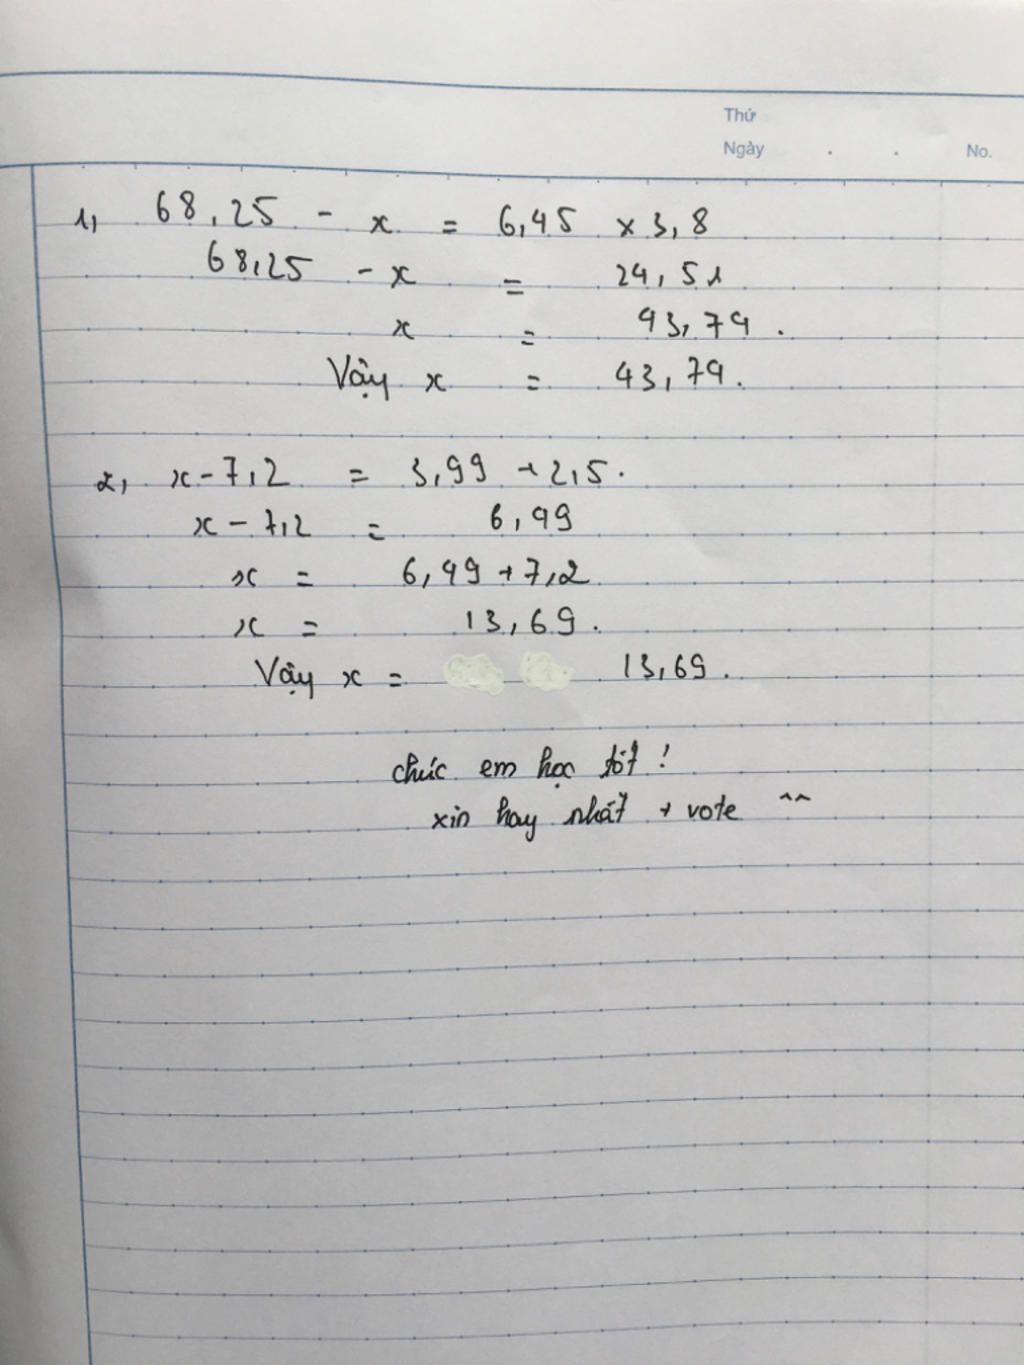 Thứ
Ngày . . No.
1, 68,25 - x = 6,45 x 3,8
68,25 - x = 24,51
x = 43,74.
Vậy x = 43,74.
2, x - 7,2 = 3,99 + 2,5.
x - 7,2 = 6,49
x = 6,49 + 7,2
x = 13,69.
Vậy x = 13,69.
chúc em học tốt !
xin hay nhất + vote ^^